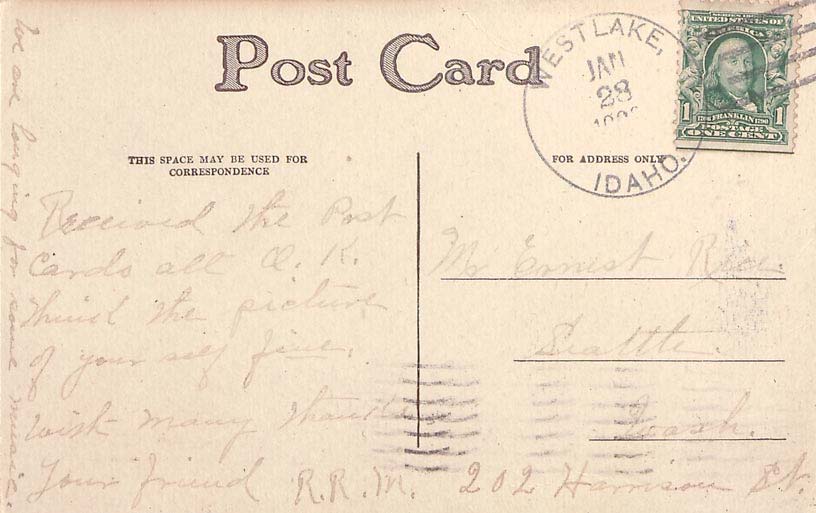 Post Card
WESTLAKE,
JAN
28
IDAHO.
SERIES 1902
UNITED STATES OF
AMERICA
1 1
1706 FRANKLIN 1790
POSTAGE
ONE CENT
THIS SPACE MAY BE USED FOR
CORRESPONDENCE
FOR ADDRESS ONLY.
Received the Post
Cards all O. K.
think the picture
of your self fine.
with many thanks
Your friend R.R.M.
We are longing for some music.
Mr Ernest Rice
Seattle
Wash.
202 Harrison St.